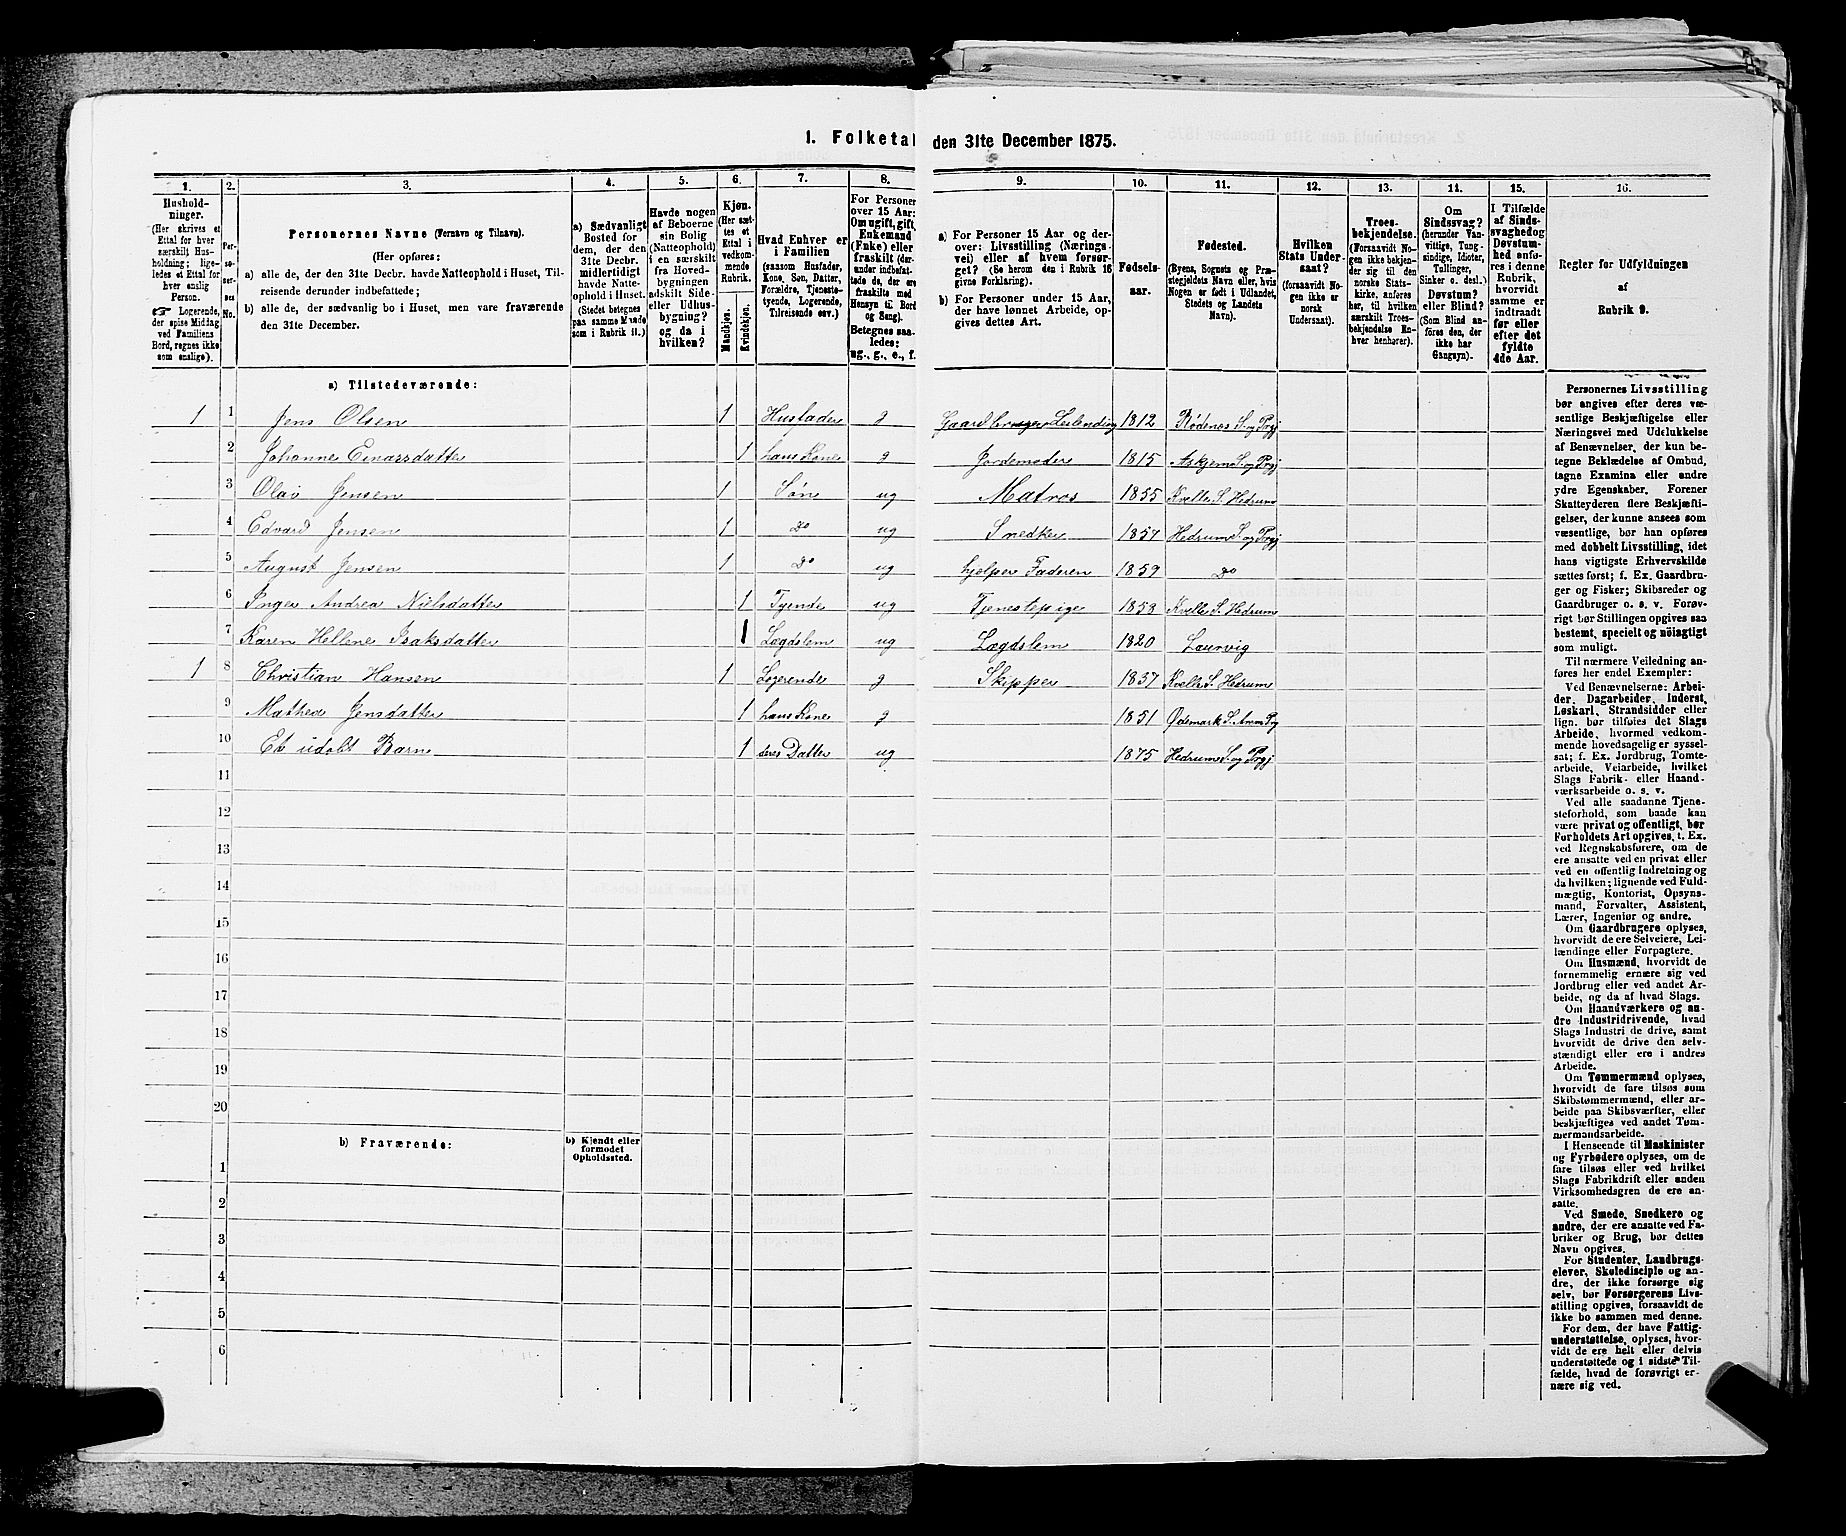 1. Folketal den 31te December 1875.
1. 2. 3. 4. 5. 6. 7. 8. 9. 10. 11. 12. 13. 14. 15. 16.
Hushold-
ninger.
(Her skrives et
Ettal for hver
særskilt Hus-
holdning; lige-
ledes et Ettal for
hver enslig
Person.
☞ Logerende,
der spise Middag
ved Familiens
Bord, regnes ikke
som enslige).
Per-
soner-
nes
No.
Personernes Navne (Fornavn og Tilnavn).
(Her opføres:
a) alle de, der den 31te Decbr. havde Natteophold i Huset, Til-
reisende derunder indbefattede;
b) alle de, der sædvanlig bo i Huset, men vare fraværende
den 31te December.
a) Sædvanligt
Bosted for
dem, der den
31te Decbr.
midlertidigt
havde Natte-
ophold i Huset.
(Stedet betegnes
paa samme Maade
som i Rubrik 11.)
Havde nogen
af Beboerne
sin Bolig
(Natteophold)
i en særskilt
fra Hoved-
bygningen
adskilt Side-
eller Udhus-
bygning?
og da i
hvilken?
Kjøn.
(Her sæt-
tes et
Ettal i
vedkom-
mende
Rubrik.
Mandkjøn.
Kvindekjøn.
Hvad Enhver er
i Familien
(saasom Husfader,
Kone, Søn, Datter,
Forældre, Tjeneste-
tyende, Logerende,
Tilreisende osv.)
For Personer
over 15 Aar:
Om ugift, gift,
Enkemand
(Enke) eller
fraskilt (der-
under indbefat-
tede de, der ere
fraskilte med
Hensyn til Bord
og Seng).
Betegnes saa-
ledes:
ug., g., e., f.
a) For Personer 15 Aar og der-
over: Livsstilling (Nærings-
vei) eller af hvem forsør-
get? (Se herom den i Rubrik 16
givne Forklaring).
b) For Personer under 15 Aar,
der have lønnet Arbeide, op-
gives dettes Art.
Fødsels-
aar.
Fødested.
(Byens, Sognets og Præ-
stegjeldets Navn eller, hvis
Nogen er født i Udlandet,
Stedets og Landets
Navn).
Hvilken
Stats Under-
saat?
(forsaavidt No-
gen ikke er
norsk
Undersaat).
Troes-
bekjendelse.
(Forsaavidt No-
gen ikke bekjen-
der sig til den
norske Stats-
kirke, anføres
her, til hvilken
særskilt Troes-
bekjendelse En-
hver henhører).
Om
Sindssvag?
(herunder Van-
vittige, Tung-
sindige, Idioter,
Tullinger,
Sinker o. desl.)
Døvstum?
eller Blind?
(Som Blind an-
føres den, der
ikke har
Gangsyn).
I Tilfælde
af Sinds-
svaghed og
Døvstum-
hed anfø-
res i denne
Rubrik,
hvorvidt
samme er
indtraadt
før eller
efter det
fyldte
4de Aar.
Regler for Udfyldningen
af
Rubrik 9.
a) Tilstedeværende:
1 1 Jens Olsen 1 Husfader g Gaardbruger Leilending 1812 Rødenæs S. og Prgj
2 Johanne Einarsdatter 1 hans Kone g Jordemoder 1815 Askjem S. og Prgj
3 Olav Jensen 1 Søn ug Matros 1855 Kvelle S. Hedrum
4 Edvard Jensen 1 Do ug Snedker 1857 Hedrum S. og Prgj
5 August Jensen 1 Do ug hjelper Faderen 1859 Do
6 Inger Andrea Nielsdatter 1 Tyende ug Tjenestepige 1853 Kvelle S. Hedrum
7 Karen Hellene Isaksdatter 1 Lægdslem ug Lægdslem 1820 Laurvig
1 8 Christian Hansen 1 Logerende g Skipper 1837 Kvelle S. Hedrum
9 Mathea Jensdatter 1 hans Kone g 1851 Ødemark S.
10 Et udøbt Barn 1 deres Datter ug 1875 Hedrum S. og Prgj
11
12
13
14
15
16
17
18
19
20
b) Fraværende:
b) Kjendt eller
formodet
Opholdssted.
1
2
3
4
5
6
Personernes Livsstilling
bør angives efter deres væ-
sentlige Beskjæftigelse eller
Næringsvei med Udelukkelse
af Benævnelser, der kun be-
tegne Beklædelse af Ombud,
tagne Examina eller andre
ydre Egenskaber. Forener
Skatteyderen flere Beskjæfti-
gelser, der kunne ansees som
væsentlige, bør han opføres
med dobbelt Livsstilling, idet
hans vigtigste Erhvervskilde
sættes først; f. Ex. Gaardbru-
ger og Fisker; Skibsreder og
Gaardbruger o. s. v. Forøv-
rigt bør Stillingen opgives saa
bestemt, specielt og nøiagtigt
som muligt.
Til nærmere Veiledning an-
føres her endel Exempler:
Ved Benævnelserne: Arbei-
der, Dagarbeider, Inderst,
Løskarl, Strandsidder eller
lign. bør tilføies det Slags
Arbeide, hvormed vedkom-
mende hovedsagelig er syssel-
sat; f. Ex. Jordbrug, Tomte-
arbeide, Veiarbeide, hvilket
Slags Fabrik- eller Haand-
værksarbeide o. s. v.
Ved alle saadanne Tjene-
steforhold, som baade kan
være privat og offentligt, bør
Forholdets Art opgives, t. Ex.
ved Regnskabsførere, om de
ere ansatte ved en privat eller
ved en offentlig Indretning og
da hvilken; lignende ved Fuld-
mægtig, Kontorist, Opsyns-
mand, Forvalter, Assistent,
Lærer, Ingeniør og andre.
Om Gaardbrugere oplyses,
hvorvidt de ere Selveiere, Lei-
lændinge eller Forpagtere.
Om Husmænd, hvorvidt de
fornemmelig ernære sig ved
Jordbrug eller ved andet Ar-
beide, og da af hvad Slags.
Om Haandværkere og an-
dre Industridrivende, hvad
Slags Industri de drive, samt
hvorvidt de drive den selv-
stændigt eller ere i andres
Arbeide.
Om Tømmermænd oplyses,
hvorvidt de fare tilsøs som
Skibstømmermænd, eller ar-
beide paa Skibsværfter, eller
beskjæftiges ved andet Tøm-
mermandsarbeide.
I Henseende til Maskinister
og Fyrbødere oplyses, om de
fare tilsøs eller ved hvilket
Slags Fabrikdrift eller anden
Virksomhedsgren de ere an-
satte.
Ved Smede, Snedkere og
andre, der ere ansatte ved Fa-
briker og Brug, bør dettes
Navn opgives.
For Studenter, Landbrugs-
elever, Skoledisciple og an-
dre, der ikke forsørge sig
selv, bør Forsørgerens Livs-
stilling opgives, forsaavidt de
ikke bo sammen med denne.
For dem, der have Fattig-
understøttelse, oplyses, hvor-
vidt de ere helt eller delvis
understøttede og i sidste Til-
fælde, hvad de forøvrigt er-
nære sig ved.